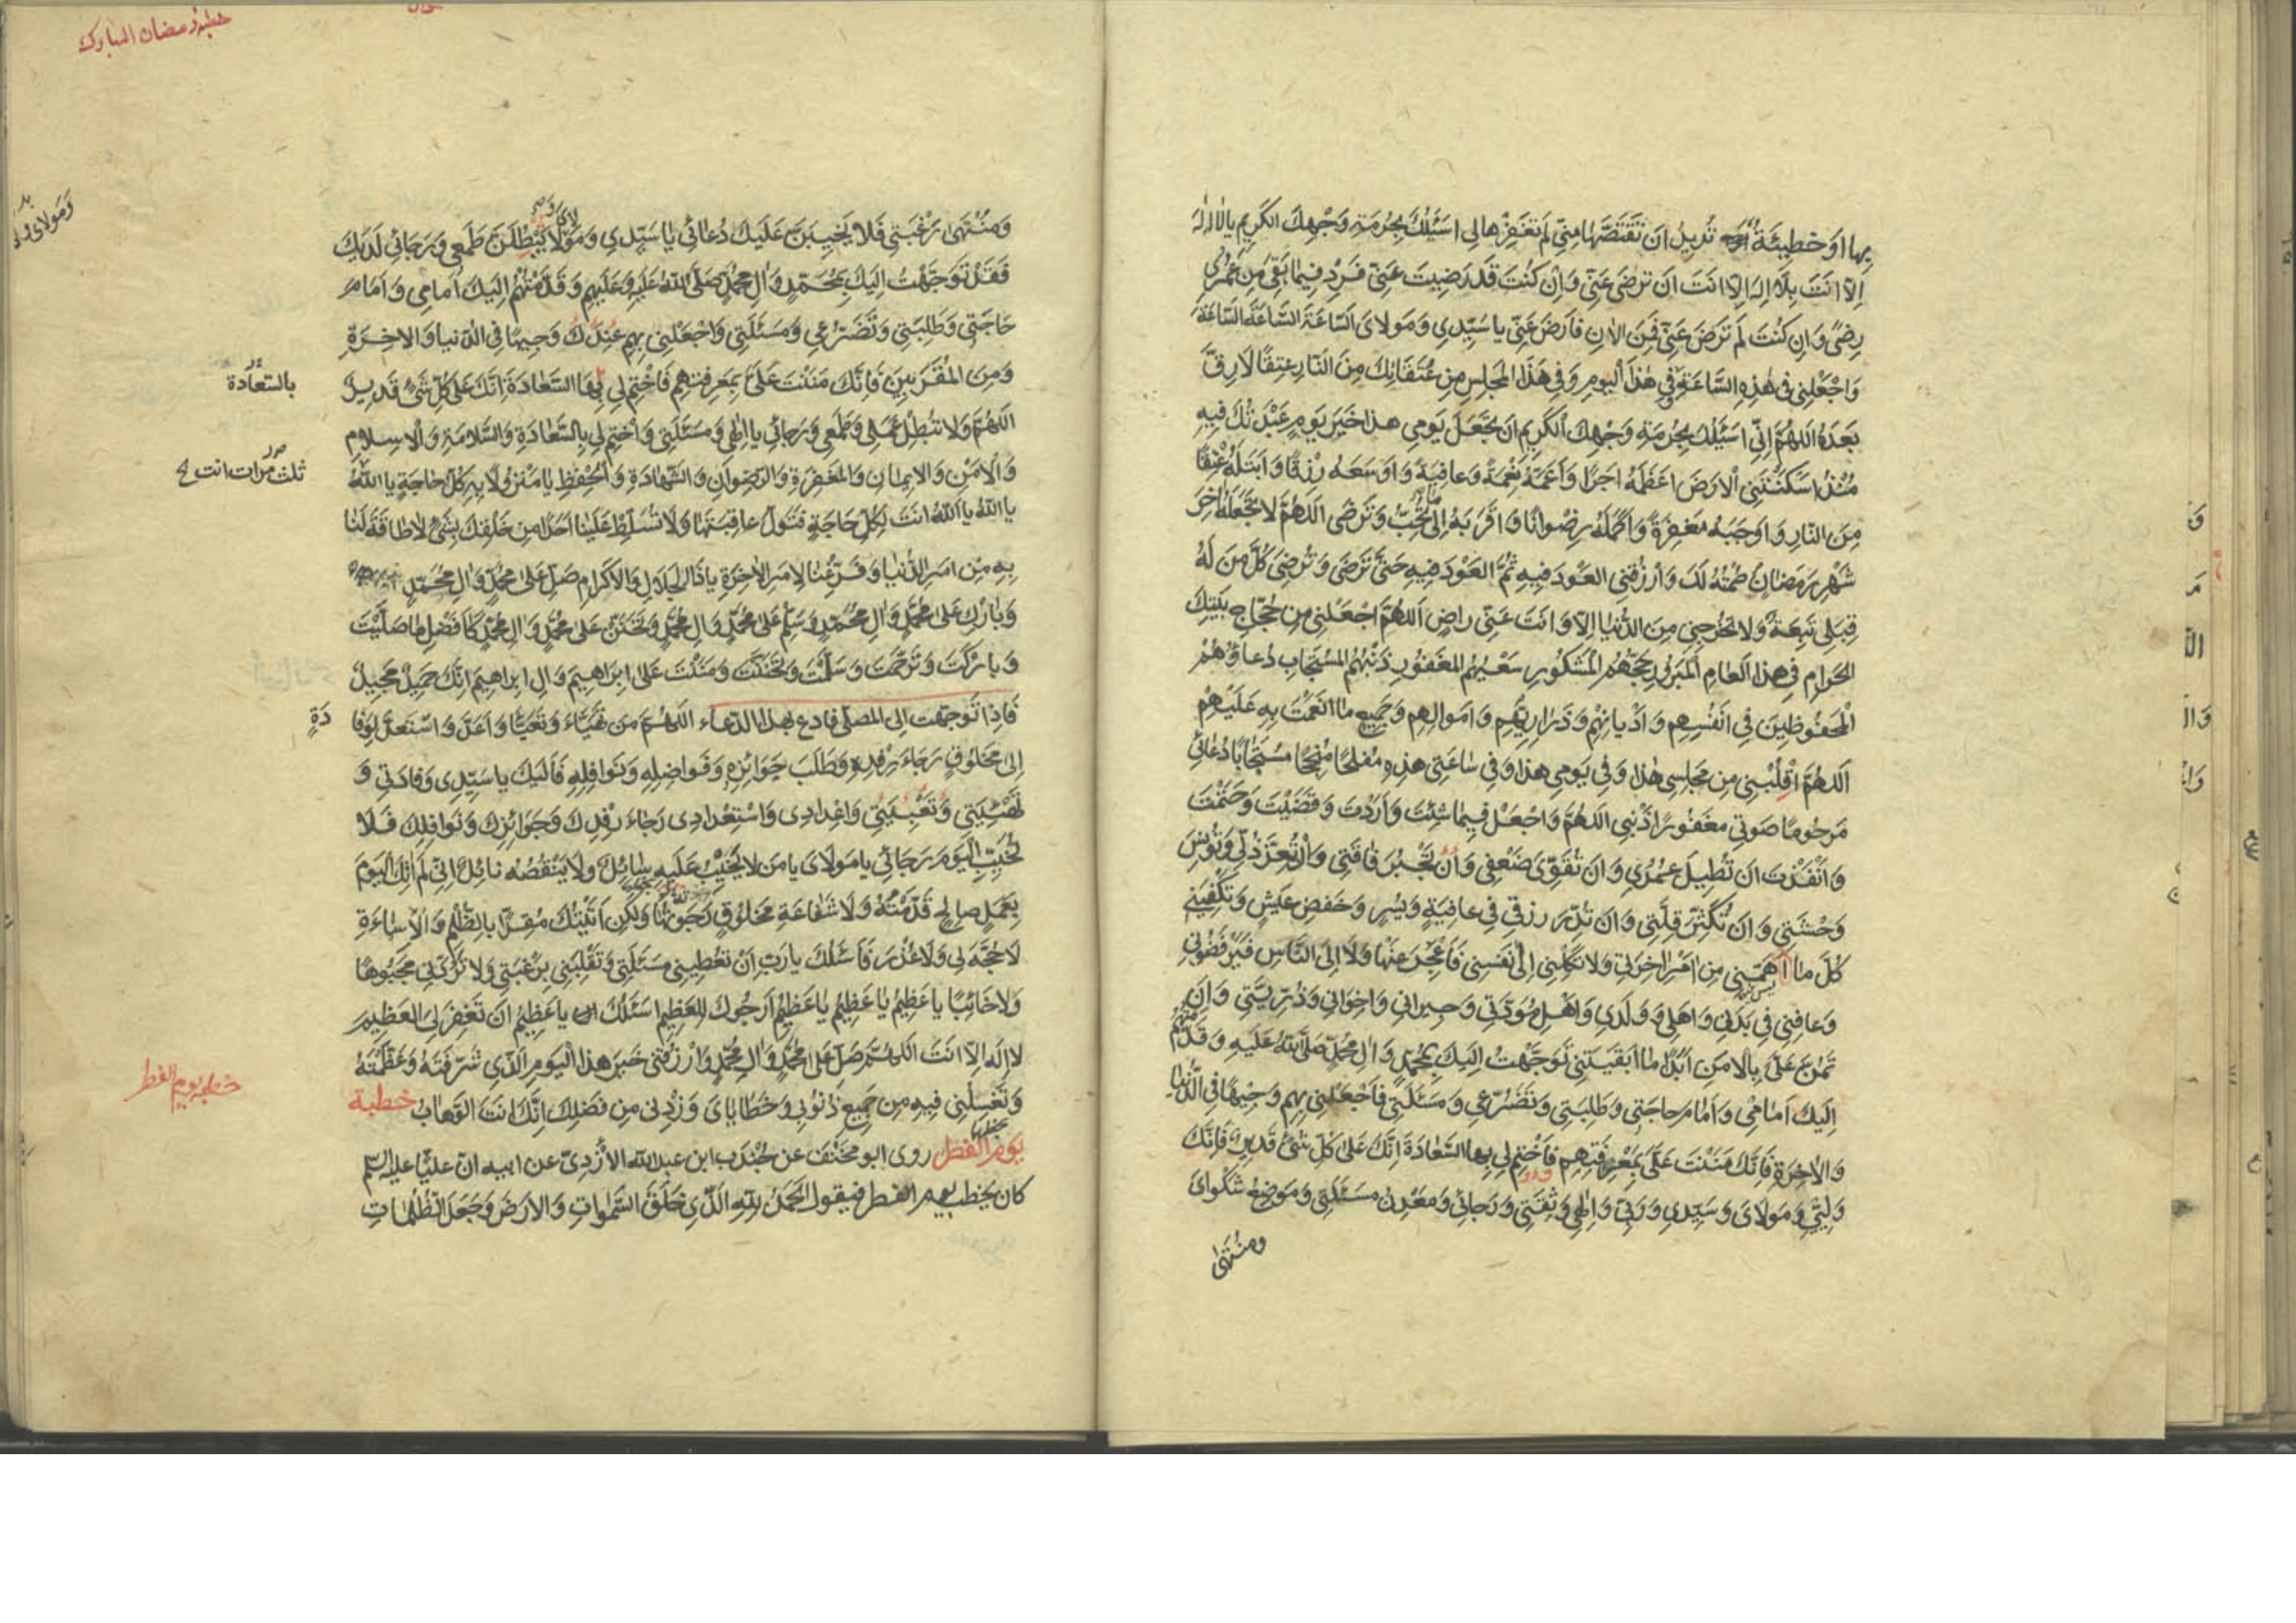 بِها اَوْ خَطِيئَةٌ تُرِيدُ اَنْ تَقْتَصَّها مِنِّي لَمْ تَغْفِرْها لِي اَسْئَلُكَ بِحُرْمَةِ وَجْهِكَ الكَرِيمِ يا لا اِلٰهَ
اِلاّ اَنْتَ بِلا اِلٰهَ اِلاّ اَنْتَ اَنْ تَرْضىٰ عَنِّي وَاِنْ كُنْتَ قَدْ رَضِيتَ عَنِّي فَزِدْ فِيما بَقِيَ مِنْ عُمْرِي
رِضىً وَاِنْ كُنْتَ لَمْ تَرْضَ عَنِّي فَمِنَ الاٰنِ فَارْضَ عَنِّي يا سَيِّدِي وَمَوْلايَ السّاعَةَ السّاعَةَ السّاعَةَ
وَاجْعَلْنِي فِي هٰذِهِ السّاعَةِ وَفِي هٰذَا الْيَومِ وَفِي هٰذَا المَجْلِسِ مِنْ عُتَقائِكَ مِنَ النّارِ عِتْقًا لا رِقَّ
بَعْدَهُ اَللّهُمَّ اِنِّي اَسْئَلُكَ بِحُرْمَةِ وَجْهِكَ الْكَرِيمِ اَنْ تَجْعَلَ يَوْمِي هذا خَيْرَ يَوْمٍ عَبَدْتُكَ فِيهِ
مُنْذُ اَسْكَنْتَنِي الْاَرْضَ اَعْظَمَهُ اَجْرًا وَاَعَمَّهُ نِعْمَةً وَعافِيَةً وَاَوْسَعَهُ رِزْقًا وَاَبْتَلَهُ عِتْقًا
مِنَ النّارِ وَاَوْجَبَهُ مَغْفِرَةً وَاَكْمَلَهُ رِضْوانًا وَاَقْرَبَهُ اِلىٰ ما تُحِبُّ وَتَرْضى اَللّهُمَّ لا تَجْعَلْهُ اٰخِرَ
شَهْرِ رَمَضانَ صُمْتُهُ لَكَ وَارْزُقْنِي العَوْدَ فِيهِ ثُمَّ العَوْدَ فِيهِ حَتّىٰ تَرْضىٰ وَتُرْضِيَ كُلَّ مَنْ لَهُ
قِبَلِي تَبِعَةٌ وَلا تُخْرِجْنِي مِنَ الدُّنْيا اِلاّ وَاَنْتَ عَنِّي راضٍ اَللّهُمَّ اجْعَلْنِي مِنْ حُجّاجِ بَيْتِكَ
الحَرامِ فِي هذا العامِ المَبْرُورِ حَجُّهُمُ الْمَشْكُورِ سَعْيُهُمُ المَغْفُورِ ذَنْبُهُمُ المُسْتَجابِ دُعاؤُهُمْ
الْمَحْفُوظِينَ فِي اَنْفُسِهِمْ وَاَدْيانِهِمْ وَذَرارِيِّهِمْ وَاَمْوالِهِمْ وَجَمِيعِ ما اَنْعَمْتَ بِهِ عَلَيْهِمْ
اَللّهُمَّ اقْلِبْنِي مِنْ مَجْلِسِي هٰذا وَفِي يَوْمِي هذا وَفِي ساعَتِي هذِهِ مُفْلِحًا مُنْجِحًا مُسْتَجابًا دُعائِي
مَرْحُومًا صَوْتِي مَغْفُورًا ذَنْبِي اَللّهُمَّ وَاجْعَلْ فِيما شِئْتَ وَاَرَدْتَ وَقَضَيْتَ وَحَتَمْتَ
وَاَنْفَذْتَ اَنْ تُطِيلَ عُمْرِي وَاَنْ تُقَوِّيَ ضَعْفِي وَاَنْ تَجْبُرَ فاقَتِي وَاَنْ تُعِزَّ ذُلِّي وَتُؤْنِسَ
وَحْشَتِي وَاَنْ تُكَثِّرَ قِلَّتِي وَاَنْ تُدِرَّ رِزْقِي فِي عافِيَةٍ وَيُسْرٍ وَخَفْضِ عَيْشٍ وَتَكْفِيَنِي
كُلَّ ما اَهَمَّنِي مِنْ اَمْرِ اٰخِرَتِي وَلا تَكِلْنِي اِلىٰ نَفْسِي فَاَعْجِزَ عَنْها وَلا اِلَى النّاسِ فَيَرْفُضُونِي
وَعافِنِي فِي بَدَنِي وَاَهْلِي وَوَلَدِي وَاَهْلِ مَوَدَّتِي وَجِيرانِي وَاِخْوانِي وَذُرِّيَّتِي وَاَنْ
تَمُنَّ عَلَيَّ بِالْاَمْنِ اَبَدًا ما اَبْقَيْتَنِي تَوَجَّهْتُ اِلَيْكَ بِمُحَمَّدٍ وَاٰلِ مُحَمَّدٍ صَلَّى اللهُ عَلَيْهِ وَقَدَّمْتُهُمْ
اِلَيْكَ اَمامِي وَاَمامَ حاجَتِي وَطَلِبَتِي وَتَضَرُّعِي وَمَسْئَلَتِي فَاجْعَلْنِي بِهِمْ وَجِيهًا فِي الدُّنْيا
وَالاٰخِرَةِ فَاِنَّكَ مَنَنْتَ عَلَيَّ بِمَعْرِفَتِهِمْ فَاخْتِمْ لِي بِها السَّعادَةَ اِنَّكَ عَلىٰ كُلِّ شَيْءٍ قَدِيرٌ فَاِنَّكَ
وَلِيِّي وَمَوْلايَ وَسَيِّدِي وَرَبِّي وَاِلٰهِي وَثِقَتِي وَرَجائِي وَمَعْدِنُ مَسْئَلَتِي وَمَوْضِعُ شَكْوايَ
ومُنْتَهىٰ
خطبه رمضان المبارك
وَمُنْتَهىٰ رَغْبَتِي فَلا يَخِيبَنَّ عَلَيْكَ دُعائِي يا سَيِّدِي وَمَوْلايَ وَلا يَبْطُلَنَّ طَمَعِي وَرَجائِي لَدَيْكَ
فَقَدْ تَوَجَّهْتُ اِلَيْكَ بِمُحَمَّدٍ وَاٰلِ مُحَمَّدٍ صَلَّى اللهُ عَلَيْهِ وَعَلَيْهِم وَقَدَّمْتُهُمْ اِلَيْكَ اَمامِي وَاَمامَ
حاجَتِي وَطَلِبَتِي وَتَضَرُّعِي وَمَسْئَلَتِي وَاجْعَلْنِي بِهِمْ عِنْدَكَ وَجِيهًا فِي الدُّنيا وَالاخِرَةِ
وَمِنَ المُقَرَّبِينَ فَاِنَّكَ مَنَنْتَ عَلَيَّ بِمَعْرِفَتِهِمْ فَاخْتِمْ لِي بِها السَّعادَةَ اِنَّكَ عَلىٰ كُلِّ شَيْءٍ قَدِيرٌ
بالسّعادة
اَللّهُمَّ وَلا تُبْطِلْ عَمَلِي وَطَمَعِي وَرَجائِي يا اِلٰهِي وَمَسْئَلَتِي وَاخْتِمْ لِي بِالسَّعادَةِ وَالسَّلامَةِ وَالْاِسْلامِ
وَالْاَمْنِ وَالاِيمانِ وَالمَغْفِرَةِ وَالرِّضْوانِ وَالشَّهادَةِ وَالْحِفْظِ يا مَنْزُولا بِهِ كُلُّ حاجَةٍ يا اَللهُ
ثلث مرات انت
يا اَللهُ يا اَللهُ اَنْتَ لِكُلِّ حاجَةٍ فَتَوَلَّ عاقِبَتَها وَلا تُسَلِّطْ عَلَيْنا اَحَدًا مِنْ خَلْقِكَ بِشَيْءٍ لا طاقَةَ لَنا
بِهِ مِنْ اَمْرِ الدُّنْيا وَفَرِّغْنا لِاَمْرِ الاٰخِرَةِ يا ذَا الجَلالِ وَالاِكْرامِ صَلِّ عَلىٰ مُحَمَّدٍ وَاٰلِ مُحَمَّدٍ
وَبارِكْ عَلىٰ مُحَمَّدٍ وَاٰلِ مُحَمَّدٍ وَسَلِّمْ عَلىٰ مُحَمَّدٍ وَاٰلِ مُحَمَّدٍ وَتَحَنَّنْ عَلىٰ مُحَمَّدٍ وَاٰلِ مُحَمَّدٍ كَاَفْضَلِ ما صَلَّيْتَ
وَبارَكْتَ وَتَرَحَّمْتَ وَسَلَّمْتَ وَتَحَنَّنْتَ وَمَنَنْتَ عَلىٰ اِبْراهِيمَ وَاٰلِ اِبْراهِيمَ اِنَّكَ حَمِيدٌ مَجِيدٌ
فَاِذا تَوَجَّهْتَ اِلَى المُصَلّى فَادْعُ بِهذا الدُّعاءِ اَللّهُمَّ مَنْ تَهَيَّأَ وَتَعَبَّأَ وَاَعَدَّ وَاسْتَعَدَّ لِوِفا
دَةٍ
اِلىٰ مَخْلُوقٍ رَجاءَ رِفْدِهِ وَطَلَبَ جَوائِزِهِ وَفَواضِلِهِ وَنَوافِلِهِ فَاِلَيْكَ يا سَيِّدِي وِفادَتِي وَ
تَهْيِئَتِي وَتَعْبِيَتِي وَاِعْدادِي وَاسْتِعْدادِي رَجاءَ رِفْدِكَ وَجَوائِزِكَ وَنَوافِلِكَ فَلا
تُخَيِّبِ الْيَوْمَ رَجائِي يا مَوْلايَ يا مَنْ لا يَخِيبُ عَلَيْهِ سائِلٌ وَلا يَنْقُصُهُ نائِلٌ اِنِّي لَمْ اٰتِكَ الْيَوْمَ
بِعَمَلٍ صالِحٍ قَدَّمْتُهُ وَلا شَفاعَةِ مَخْلُوقٍ رَجَوْتُها وَلٰكِنْ اَتَيْتُكَ مُقِرًّا بِالظُّلْمِ وَالْاِساءَةِ
لا حُجَّةَ لِي وَلا عُذْرَ فَاَسْئَلُكَ يا رَبِّ اَنْ تُعْطِيَنِي مَسْئَلَتِي وَتَقْلِبَنِي بِرَغْبَتِي وَلا تَرُدَّنِي مَجْبُوهًا
وَلا خائِبًا يا عَظِيمُ يا عَظِيمُ يا عَظِيمُ اَرْجُوكَ لِلْعَظِيمِ اَسْئَلُكَ يا عَظِيمُ اَنْ تَغْفِرَ لِيَ العَظِيمَ
لا اِلٰهَ اِلاّ اَنْتَ اَللّهُمَّ صَلِّ عَلىٰ مُحَمَّدٍ وَاٰلِ مُحَمَّدٍ وَارْزُقْنِي خَيْرَ هذا الْيَوْمِ الَّذِي شَرَّفْتَهُ وَعَظَّمْتَهُ
وَتَغْسِلُنِي فِيهِ مِنْ جَمِيعِ ذُنُوبِي وَخَطايايَ وَزِدْنِي مِنْ فَضْلِكَ اِنَّكَ اَنْتَ الوَهّابُ خطبة
خطبه يوم الفطر
يَوْمِ الْفِطْرِ روى ابو مخنف عن جُنْدَب ابن عبد الله الاَزْدِيّ عن ابيه انّ عليًّا عليه السلم
كان يخطب يوم الفطر فيقول اَلْحَمْدُ لِلّهِ الَّذِي خَلَقَ السَّمٰواتِ وَالاَرْضَ وَجَعَلَ الظُّلُماتِ